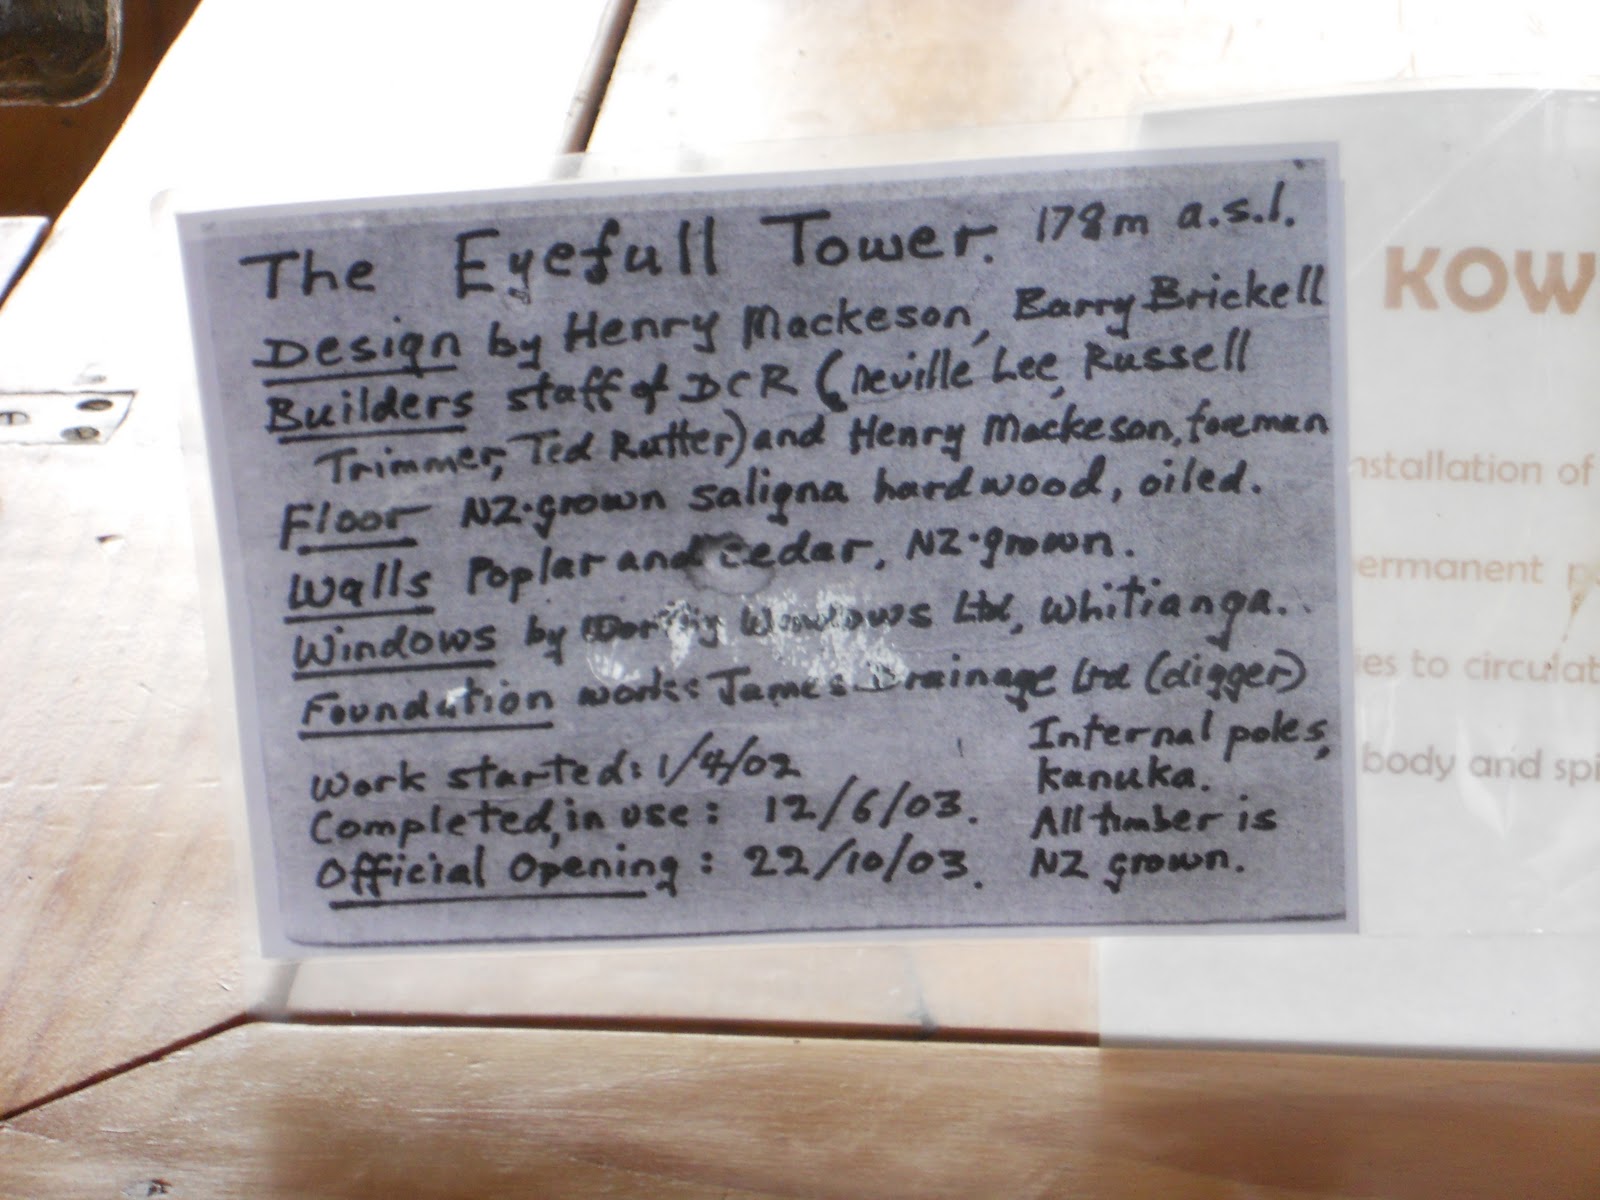 The Eyefull Tower. 178m a.s.l.
Design by Henry Mackeson, Barry Brickell
Builders staff of DCR (Neville Lee, Russell
Trimmer, Ted Rutter) and Henry Mackeson, foreman
Floor NZ-grown saligna hardwood, oiled.
Walls Poplar and cedar, NZ-grown.
Windows by Windows Ltd, Whitianga.
Foundation works James Drainage Ltd (digger)
Work started: 1/4/02
Completed, in use: 12/6/03.
Official Opening: 22/10/03.
Internal poles,
kanuka.
All timber is
NZ grown.
KOW
nstallation of
ermanent
ies to circulat
body and spi